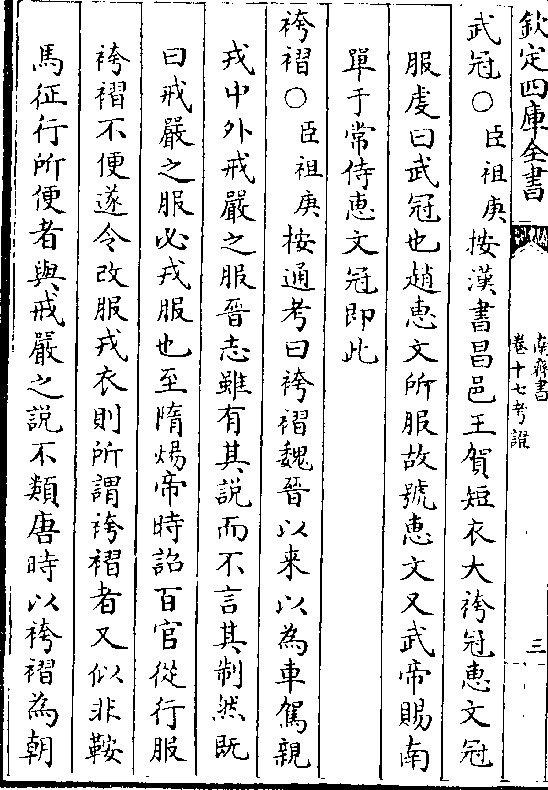 欽定四庫全書
南齊書
卷十七考證
三
武冠○臣祖庚按漢書昌邑王賀短衣大袴冠惠文冠
服虔曰武冠也趙惠文所服故號惠文又武帝賜南
單于常侍惠文冠即此
袴褶○臣祖庚按通考曰袴褶魏晉以来以為車駕親
戎中外戒嚴之服晉志雖有其説而不言其制然既
曰戒嚴之服必戎服也至隋煬帝時詔百官從行服
袴褶不便遂令改服戎衣則所謂袴褶者又似非鞍
馬征行所便者與戒嚴之説不類唐時以袴褶為朝